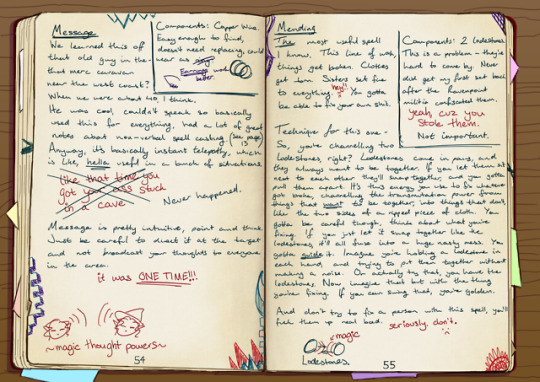 Message
We learned this off
that old guy in the
that merc caravan
near the west coast?
Components: Copper wire.
Easy enough to find,
doesn't need replacing, could
wear as
Earrings work
better
When we were about 40, I think.
He was cool, couldn't speak so basically
used this for everything, had a lot of great
notes about non-verbal spell casting (see page
15)
Anyway, it's basically instant telepathy, which
is like, hella useful in a bunch of situations
like that time you
got your ass stuck
in a cave
Never happened.
Message is pretty intuitive, point and think.
Just be careful to direct it at the target
and not broadcast your thoughts to everyone
in the area.
it was ONE TIME!!!
~magic thought powers~
54
Mending
The most useful spell
I know. This line of work,
things get broken. Clothes
get torn. Sisters set fire
to everything. You gotta
hey!!
be able to fix your own shit.
Components: 2 lodestones.
This is a problem - they're
hard to come by. Never
did get my first set back
after the
militia confiscated them.
yeah, cuz you
stole them.
Not important.
Technique for this one -
So, you're channelling two
lodestones, right? Lodestones come in pairs, and
they always want to be together. If you let them sit
next to each other they'll snap together, and you gotta
pull them apart. It's this energy you use to fix whatever
got broke, channelling the transmutation power from
things that want to be together, into things that don't,
like the two sides of a ripped piece of cloth. You
gotta be careful though, think about what you're
fixing. If you just let it snap together like the
lodestones it'll all fuse into a huge nasty mess. You
gotta guide it. Imagine you're holding a lodestone in
each hand, and trying to put them together without
making a noise. Or actually try that, you have the
lodestones. Now imagine that but with the thing
you're fixing. If you can swing that, you're golden.
And don't try to fix a person with this spell, you'll
fuck them up real bad.
seriously, don't.
magic
Lodestones
55